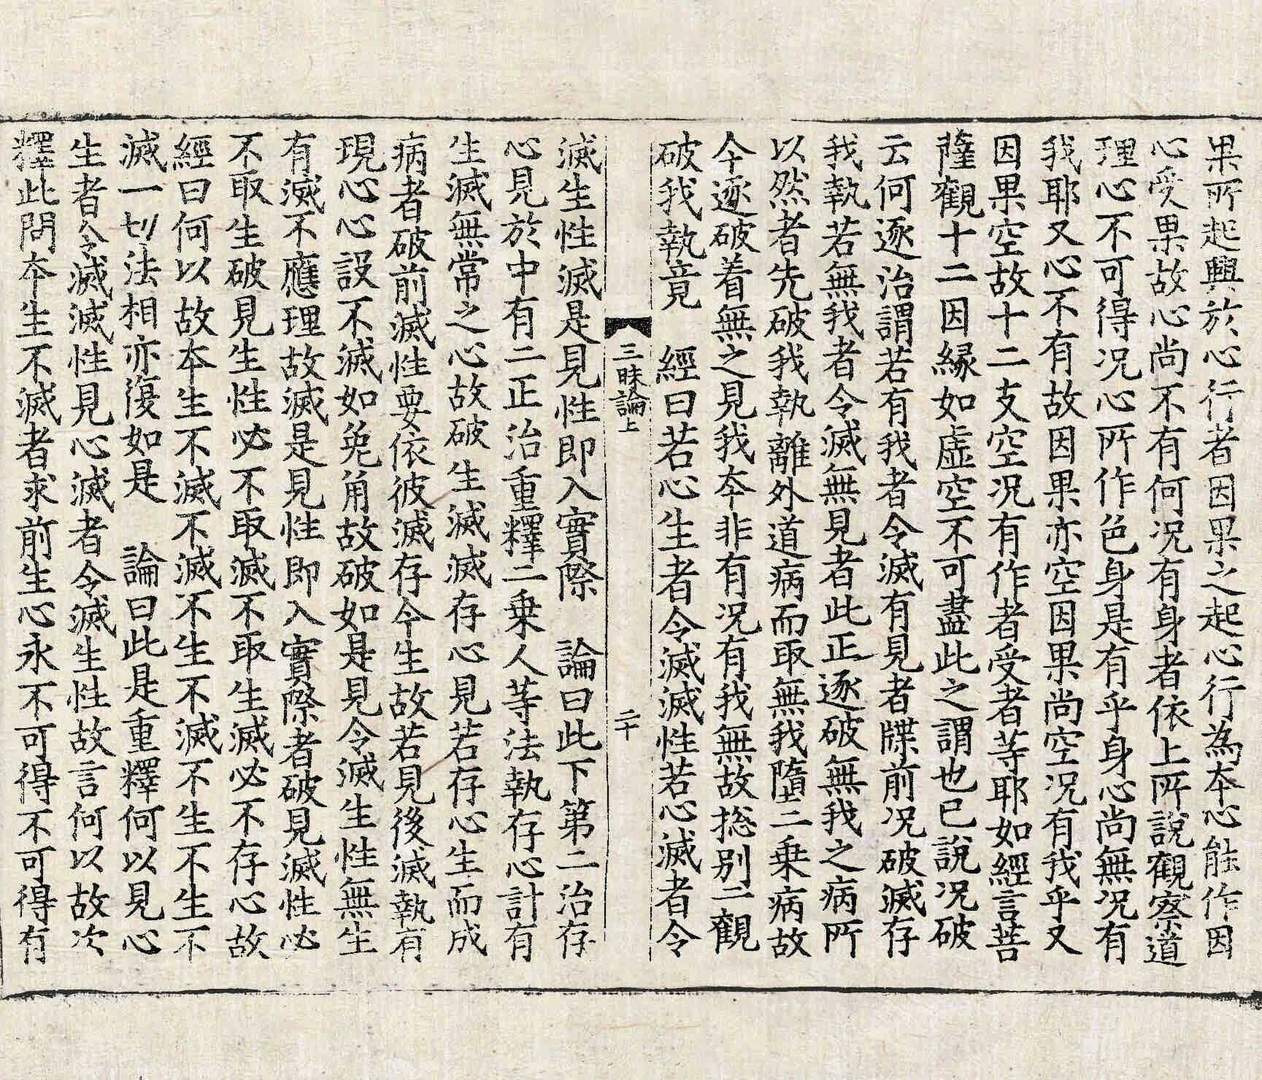 果所起興於心行者因果之起心行為夲心能作因
心受果故心尚不有何况有身者依上所說觀察道
理心不可得况心所作色身是有乎身心尚無况有
我耶又心不有故因果亦空因果尚空况有我乎又
因果空故十二支空况有作者受者等耶如經言菩
薩觀十二因縁如虛空不可盡此之謂也已說况破
云何逐治謂若有我者令滅有見者牒前况破滅存
我執若無我者令滅無見者此正逐破無我之病所
以然者先破我執離外道病而取無我墮二乗病故
今逐破着無之見我夲非有况有我無故捴別二觀
破我執竟 經曰若心生者令滅滅性若心滅者令
三昧論上 二十
滅生性滅是見性即入實際 論曰此下第二治存
心見於中有二正治重釋二乗人等法執存心計有
生滅無常之心故破生滅滅存心見若存心生而成
病者破前滅性要依彼滅存今生故若見後滅執有
現心心設不滅如兔角故破如是見令滅生性無生
有滅不應理故滅是見性即入實際者破見滅性必
不取生破見生性必不取滅不取生滅必不存心故
經曰何以故夲生不滅不滅不生不滅不生不生不
滅一切法相亦復如是 論曰此是重釋何以見心
生者令滅滅性見心滅者令滅生性故言何以故次
釋此問夲生不滅者求前生心永不可得不可得有